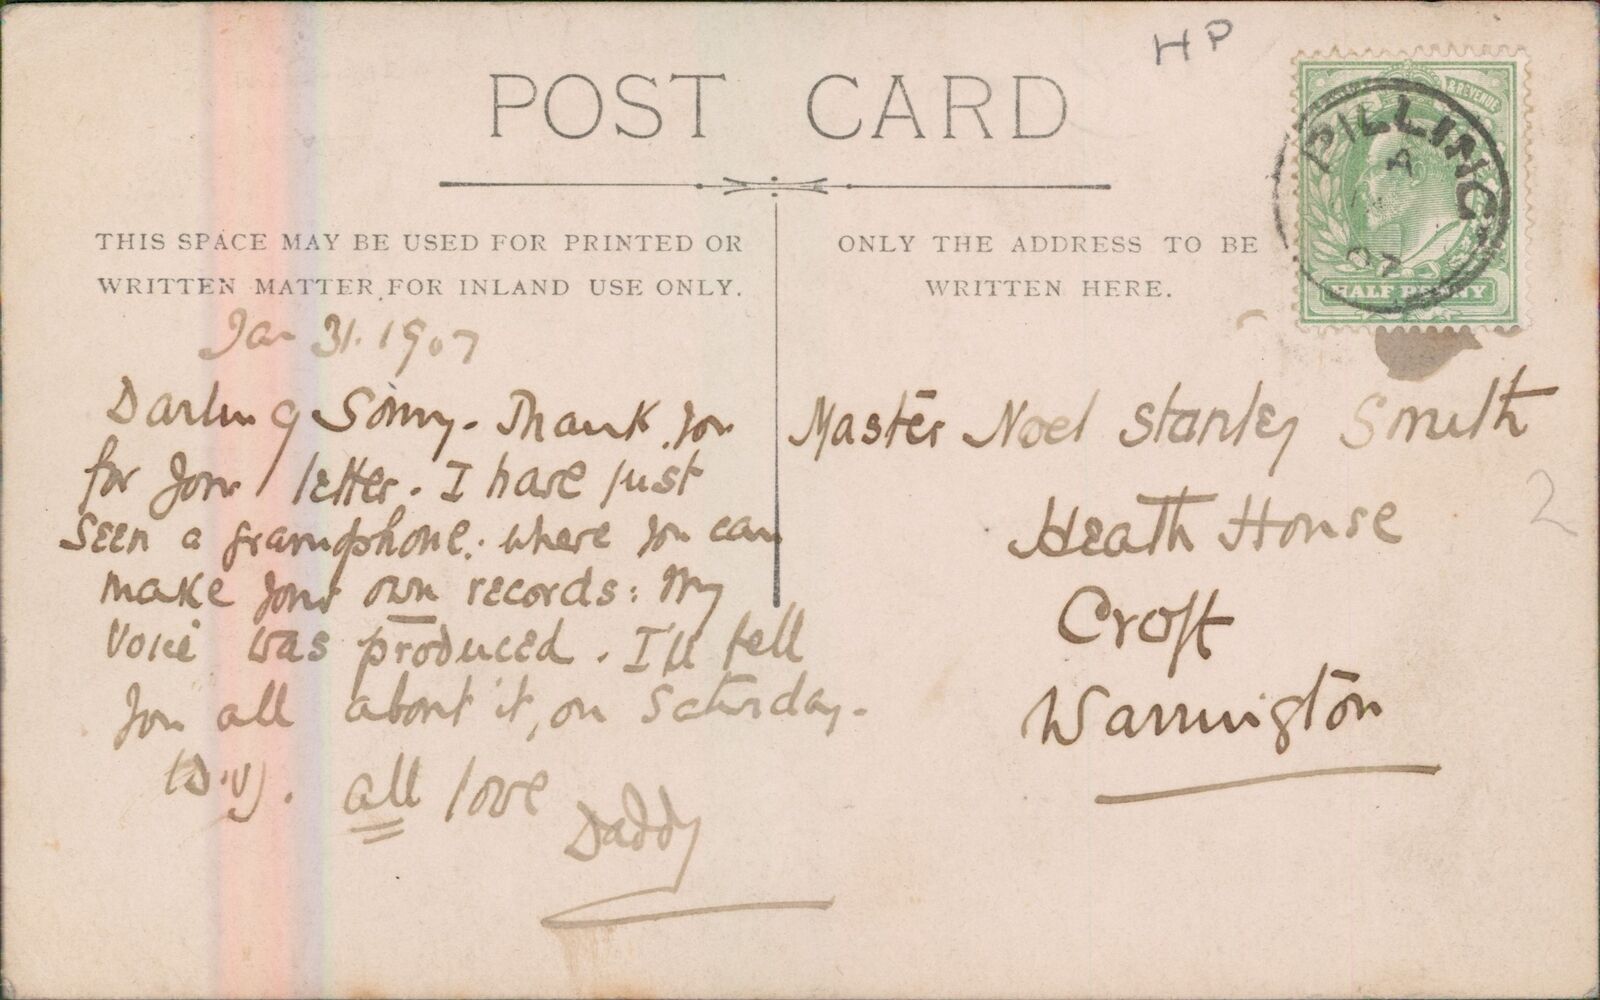 HP
POST CARD
THIS SPACE MAY BE USED FOR PRINTED OR
WRITTEN MATTER FOR INLAND USE ONLY.
ONLY THE ADDRESS TO BE
WRITTEN HERE.
& REVENUE
HALF PENNY
PILLING
A
07
Jan 31. 1907
Darling Sonny - Thank you
for your letter. I have just
seen a gramophone. where you can
make your own records: My
voice was produced. I'll tell
you all about it, on Saturday.
(D.V). all love
Daddy
Master Noel Stanley Smith
Heath House
Croft
Warrington
2